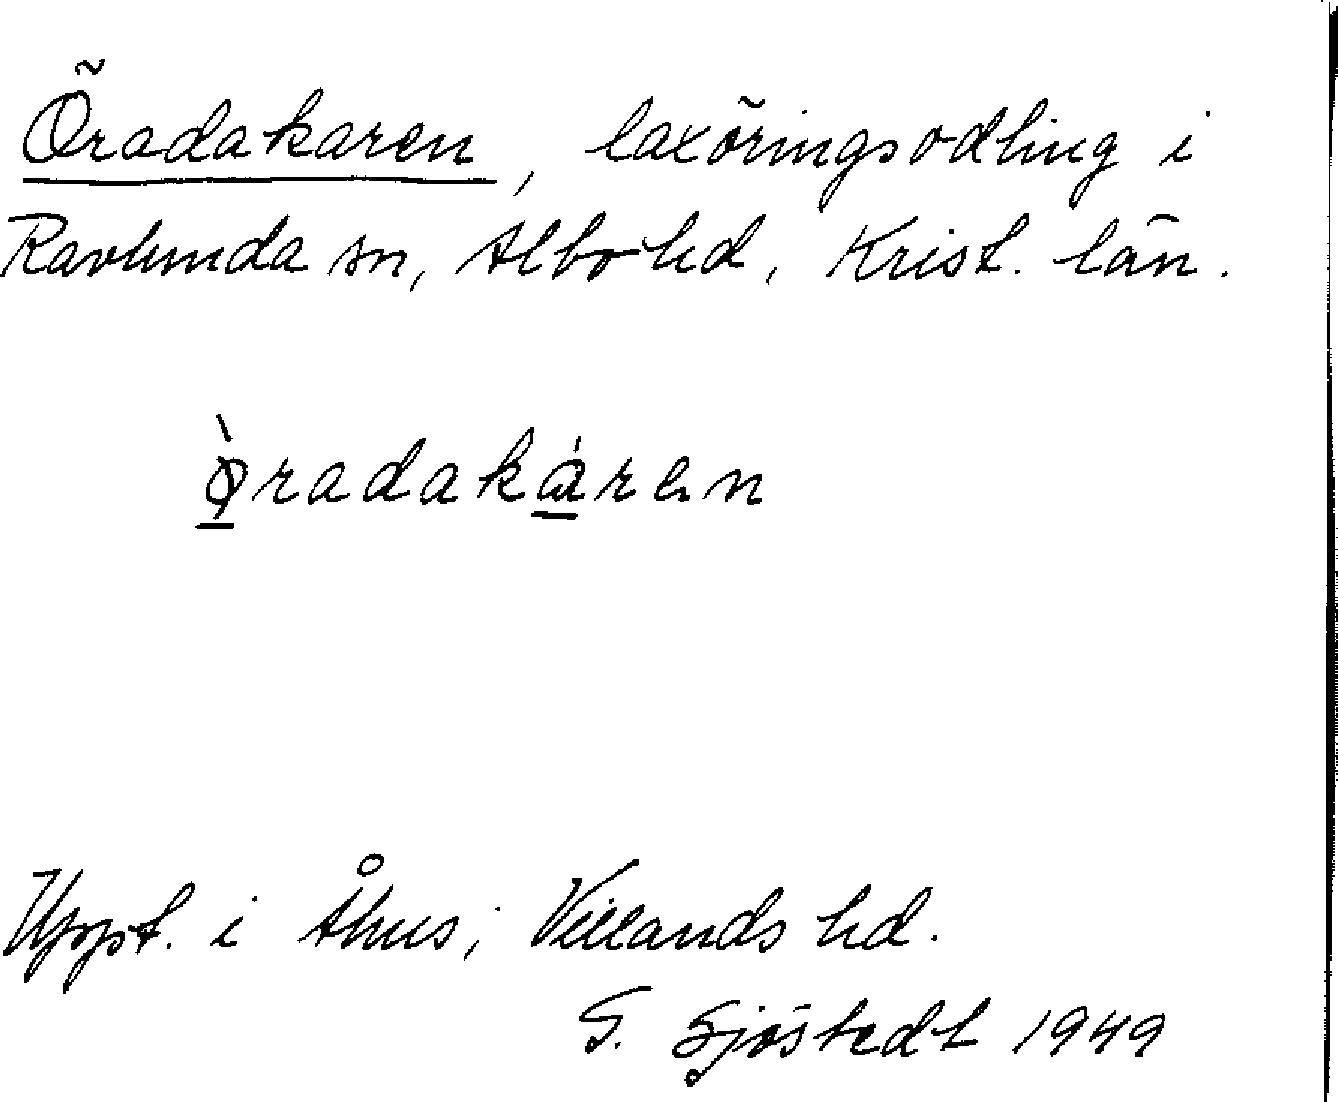 Öradakaren, laxöringsodling i
Ravlunda sn, Albo hd, Krist. län.
ø̀radakáren
Uppt. i Åhus, Villands hd.
G. Sjöstedt 1949